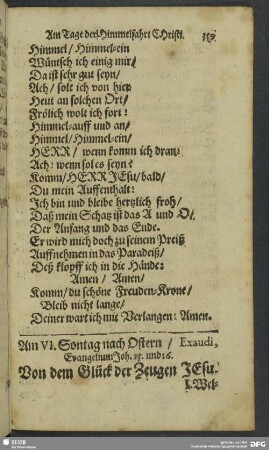 Am Tage der Himmelfahrt Christi.
Himmel/ Himmel-ein
Wüntsch ich einig mir/
Da ist sehr gut seyn/
Ach/ solt ich von hier
Heut an solchen Ort/
Frölich wolt ich fort!
Himmel-auff und an/
Himmel/ Himmel-ein/
HERR/ wenn komm ich dran?
Ach! wenn sol es seyn?
Komm/ HERR JEsu/ bald/
Du mein Auffenthalt!
Ich bin und bleibe hertzlich froh/
Daß mein Schatz ist das A und O/
Der Anfang und das Ende.
Er wird mich doch zu seinem Preiß
Auffnehmen in das Paradeiß/
Deß klopff ich in die Hände:
Amen/ Amen/
Komm/ du schöne Freuden-Krone/
Bleib nicht lange/
Deiner wart ich mit Verlangen! Amen.
Am VI. Sontag nach Ostern/ Exaudi,
Evangelium Joh. 15. und 16.
Von dem Glück der Zeugen JEsu.
I. Wel-
SLUB
DFG